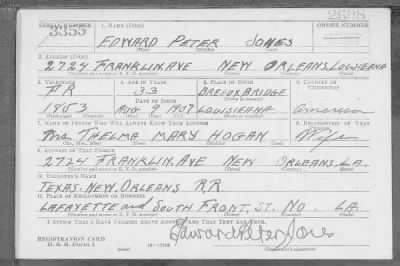 SERIAL NUMBER 1. NAME (Print) ORDER NUMBER
3355 EDWARD PETER JONES 2698
(First) (Middle) (Last)
2. ADDRESS (Print)
2724 FRANKLIN.AVE NEW ORLEANS, LOUISEANA
(Number and street or R. F. D. number) (Town) (County) (State)
3. TELEPHONE 4. AGE IN YEARS 5. PLACE OF BIRTH 6. COUNTRY OF CITIZENSHIP
FR 33 BREUXBRIDGE
DATE OF BIRTH (Town or county)
1953 AUG 9 1907 LOUISIEANA American
7. NAME OF PERSON WHO WILL ALWAYS KNOW YOUR ADDRESS 8. RELATIONSHIP OF THAT PERSON
Mrs THELMA MARY HOGAN Wife
(Mr., Mrs., Miss) (First) (Middle) (Last)
9. ADDRESS OF THAT PERSON
2724 FRANKLIN. AVE NEW ORLEANS. LA.
(Number and street or R. F. D. number) (Town) (County) (State)
10. EMPLOYER'S NAME
TEXAS. NEW, ORLEANS R.R.
11. PLACE OF EMPLOYMENT OR BUSINESS
LAFAYETTE and SOUTH FRONT. ST. NO. LA.
(Number and street or R. F. D. number) (Town) (County) (State)
I AFFIRM THAT I HAVE VERIFIED ABOVE ANSWERS AND THAT THEY ARE TRUE.
REGISTRATION CARD
D. S. S. Form 1 Edward Peter Jones
(Registrant's signature)